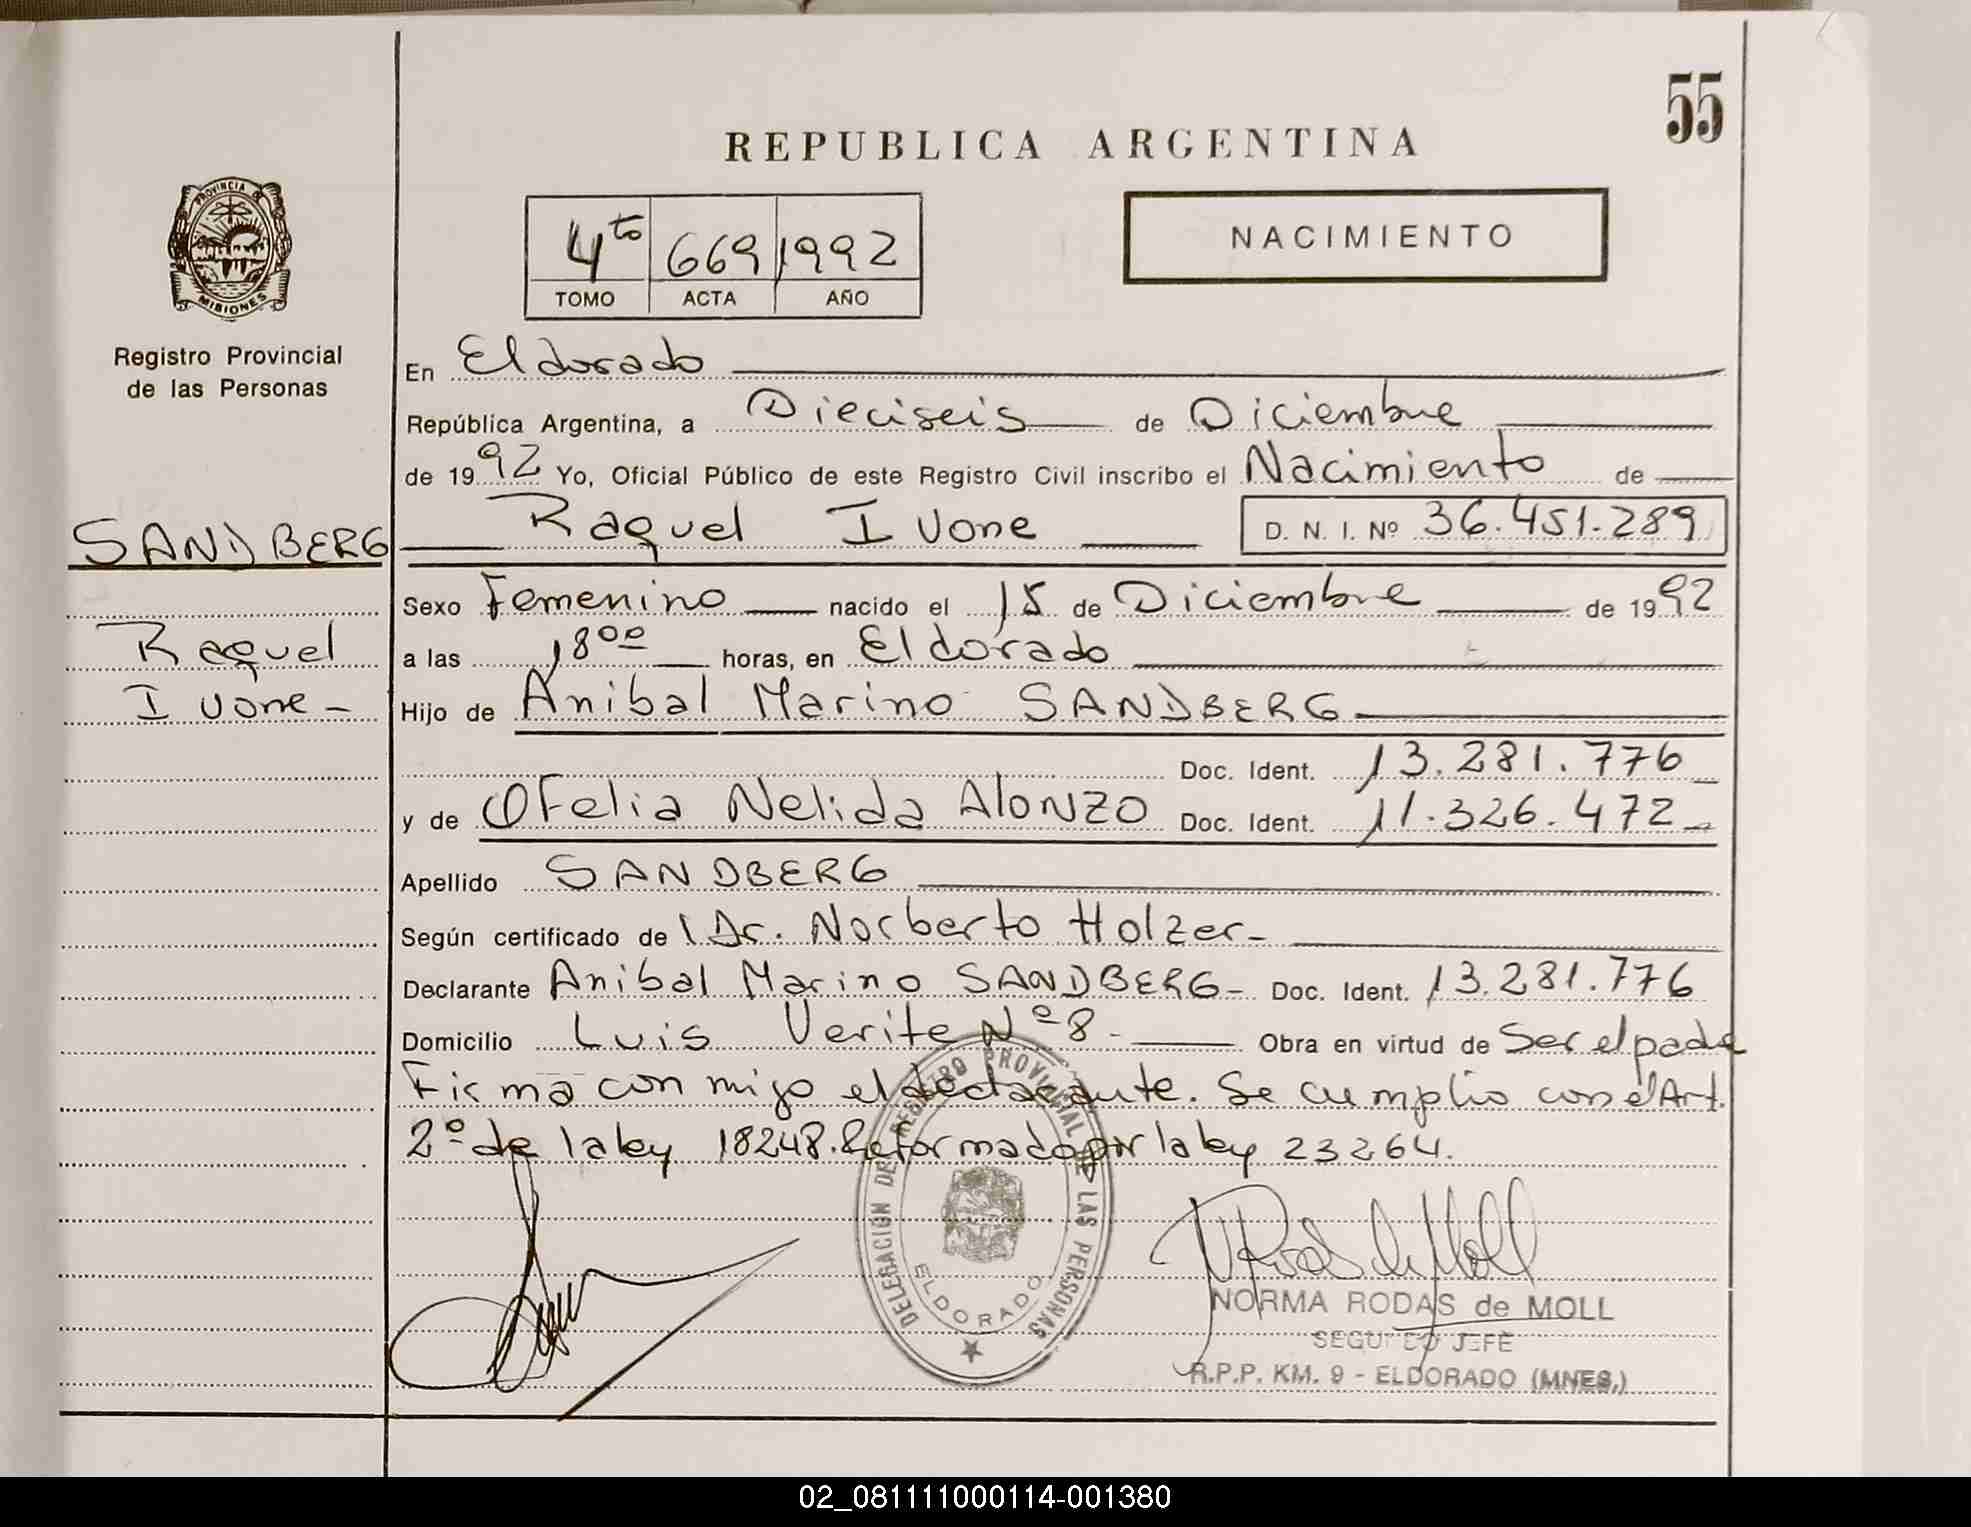 55
REPUBLICA ARGENTINA
PROVINCIA
MISIONES
4to 669 1992
TOMO ACTA AÑO
NACIMIENTO
Registro Provincial
de las Personas
En Eldorado
República Argentina, a Dieciseis de Diciembre
de 1992 Yo, Oficial Público de este Registro Civil inscribo el Nacimiento de
SANDBERG
Raquel Ivone D. N. I. Nº 36.451.289
Sexo Femenino nacido el 15 de Diciembre de 1992
Raquel
a las 18 00 horas, en Eldorado
Ivone -
Hijo de Anibal Marino SANDBERG
Doc. Ident. 13.281.776
y de Ofelia Nelida Alonzo Doc. Ident. 11.326.472
Apellido SANDBERG
Según certificado de l Dr. Norberto Holzer-
Declarante Anibal Marino SANDBERG- Doc. Ident. 13.281.776
Domicilio Luis Verite Nº 8- Obra en virtud de Ser el padre
Firma con migo el declarante. Se cumplio con el Art.
2º de la ley 18248. Reformado por la ley 23264.
DELEGACIÓN DEL REGISTRO PROVINCIAL DE LAS PERSONAS
ELDORADO
NORMA RODAS de MOLL
SEGUNDO JEFE
R.P.P. KM. 9 - ELDORADO (MNES.)
02_081111000114-001380